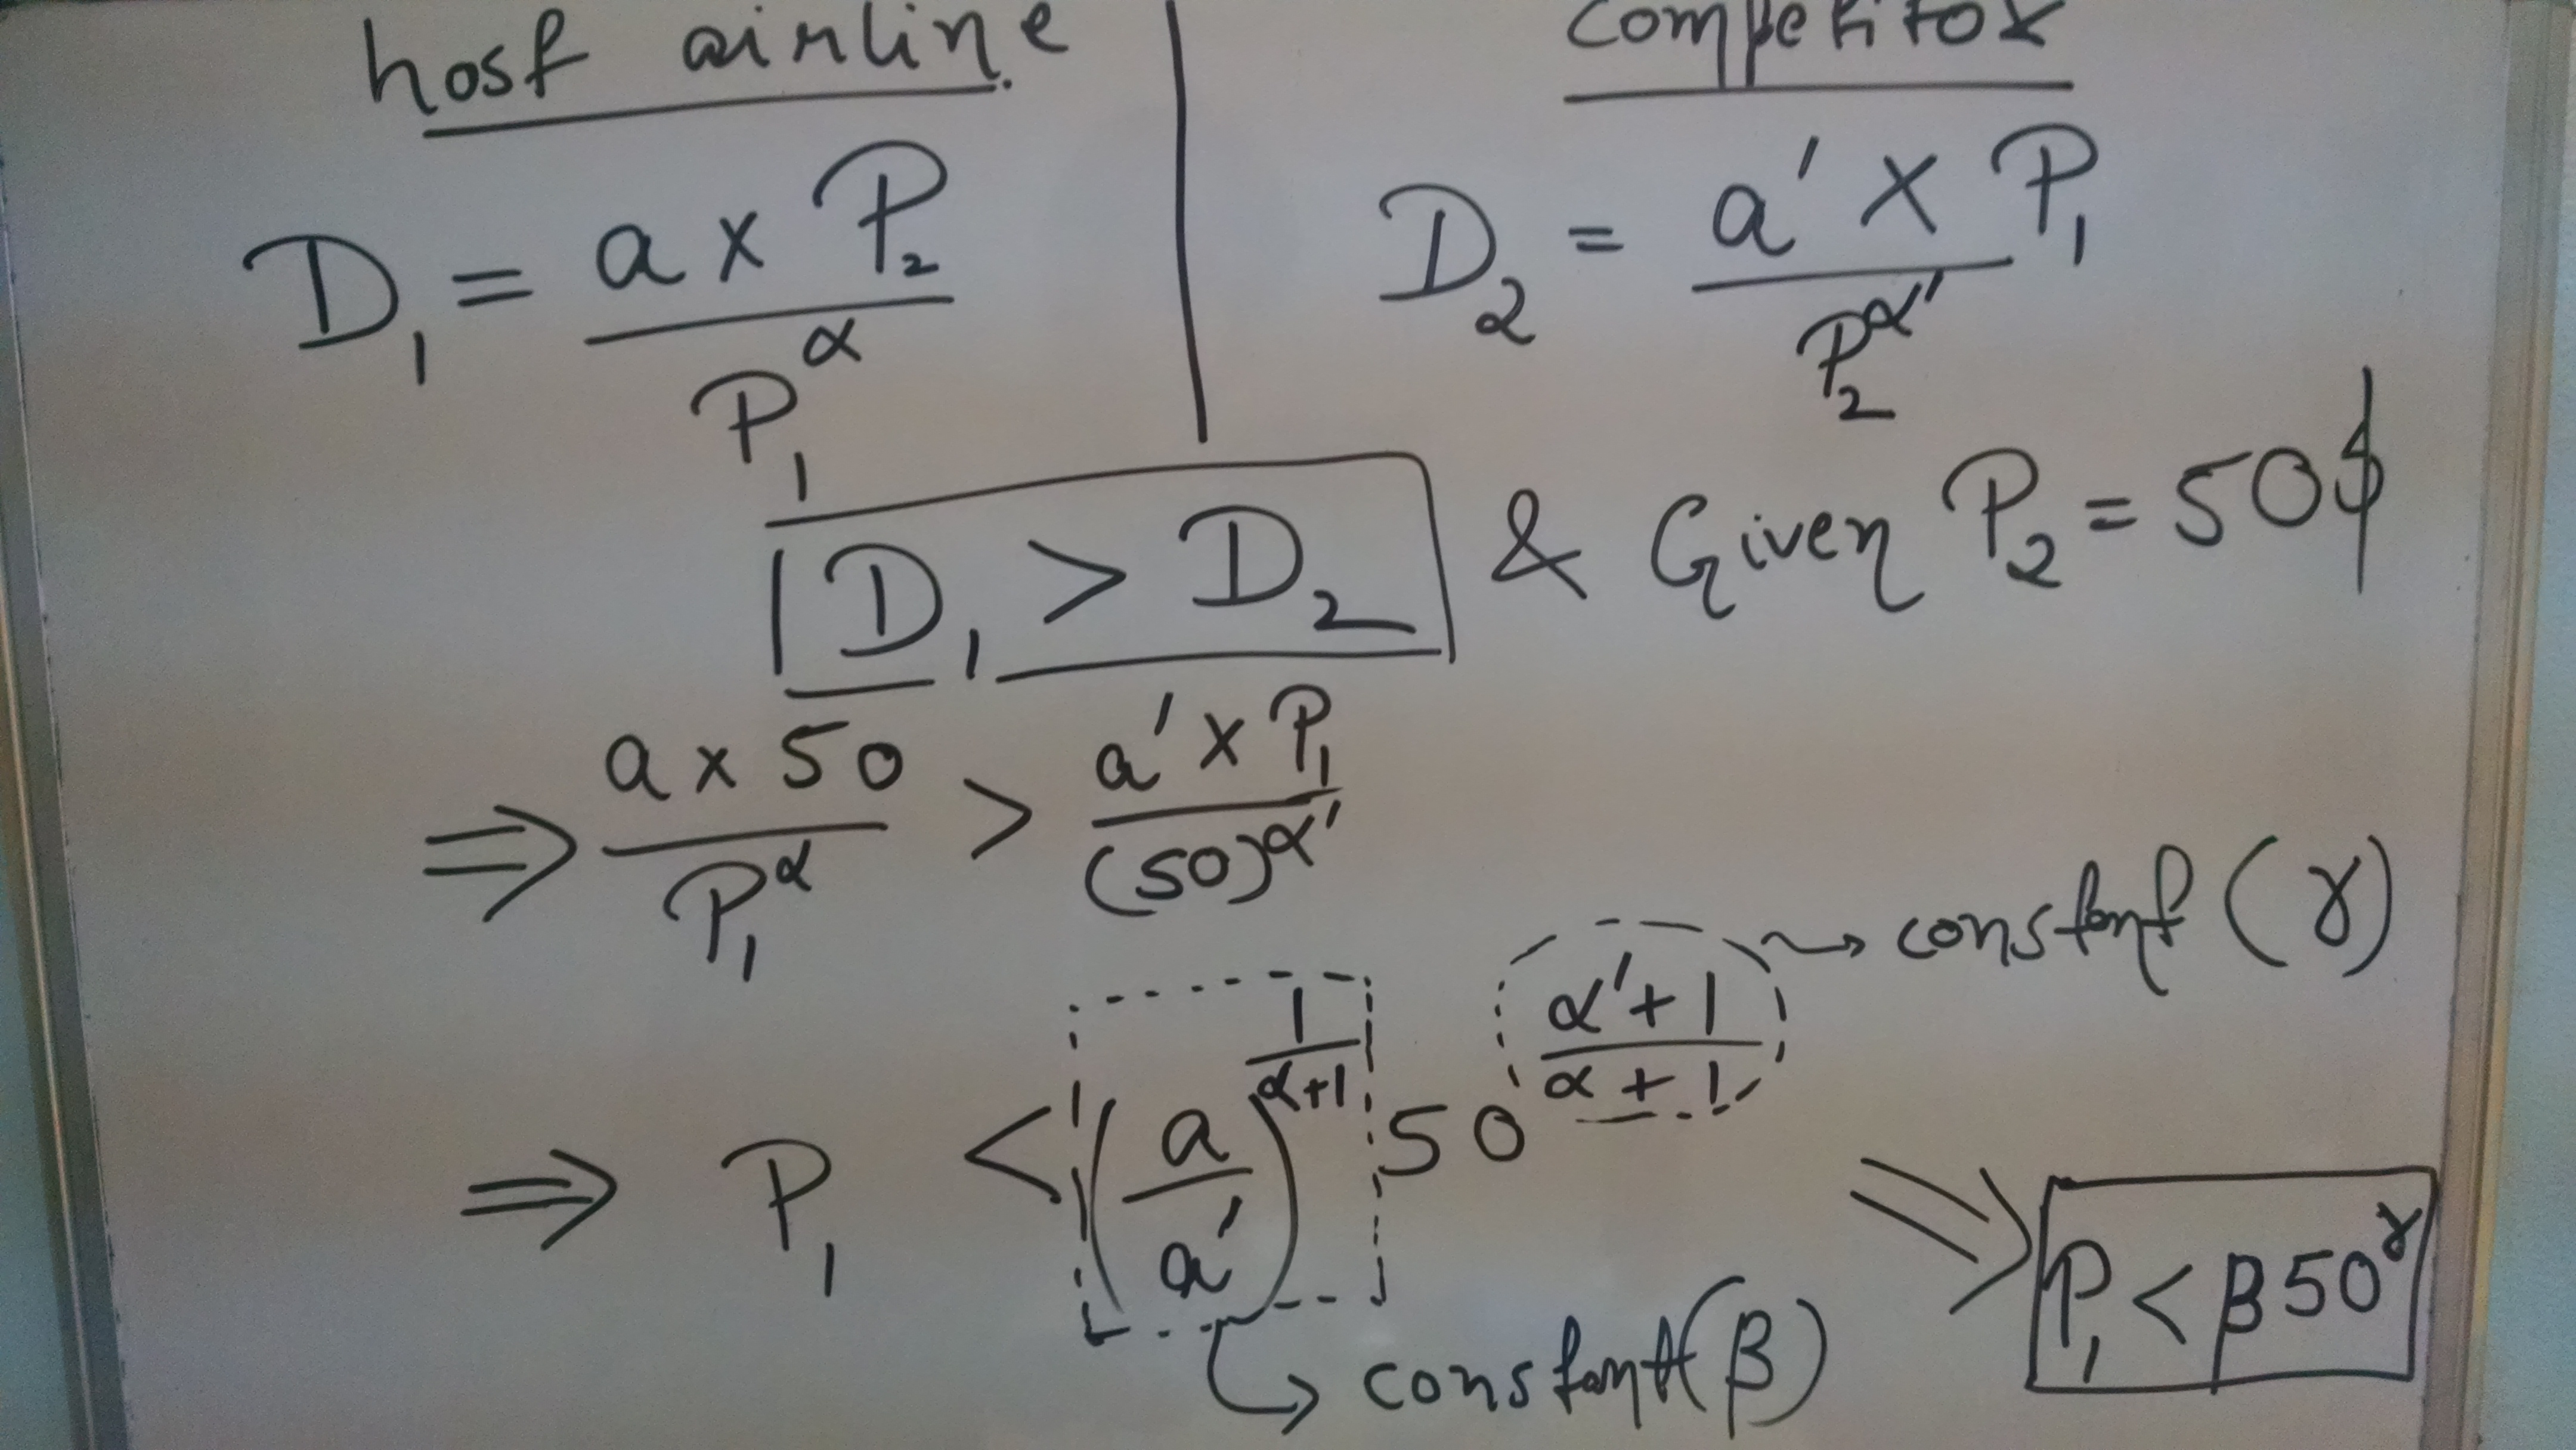 host airline.
D₁ = a x P₂ / P₁^α
competitor
D₂ = a' x P₁ / P₂^α'
D₁ > D₂ & Given P₂ = 50$
⇒ a x 50 / P₁^α > a' x P₁ / (50)^α'
⇒ P₁ < (a / a')^(1 / α+1) 50^(α'+1 / α+1) → constant (γ)
→ constant (β)
⇒ P₁ < β50^γ